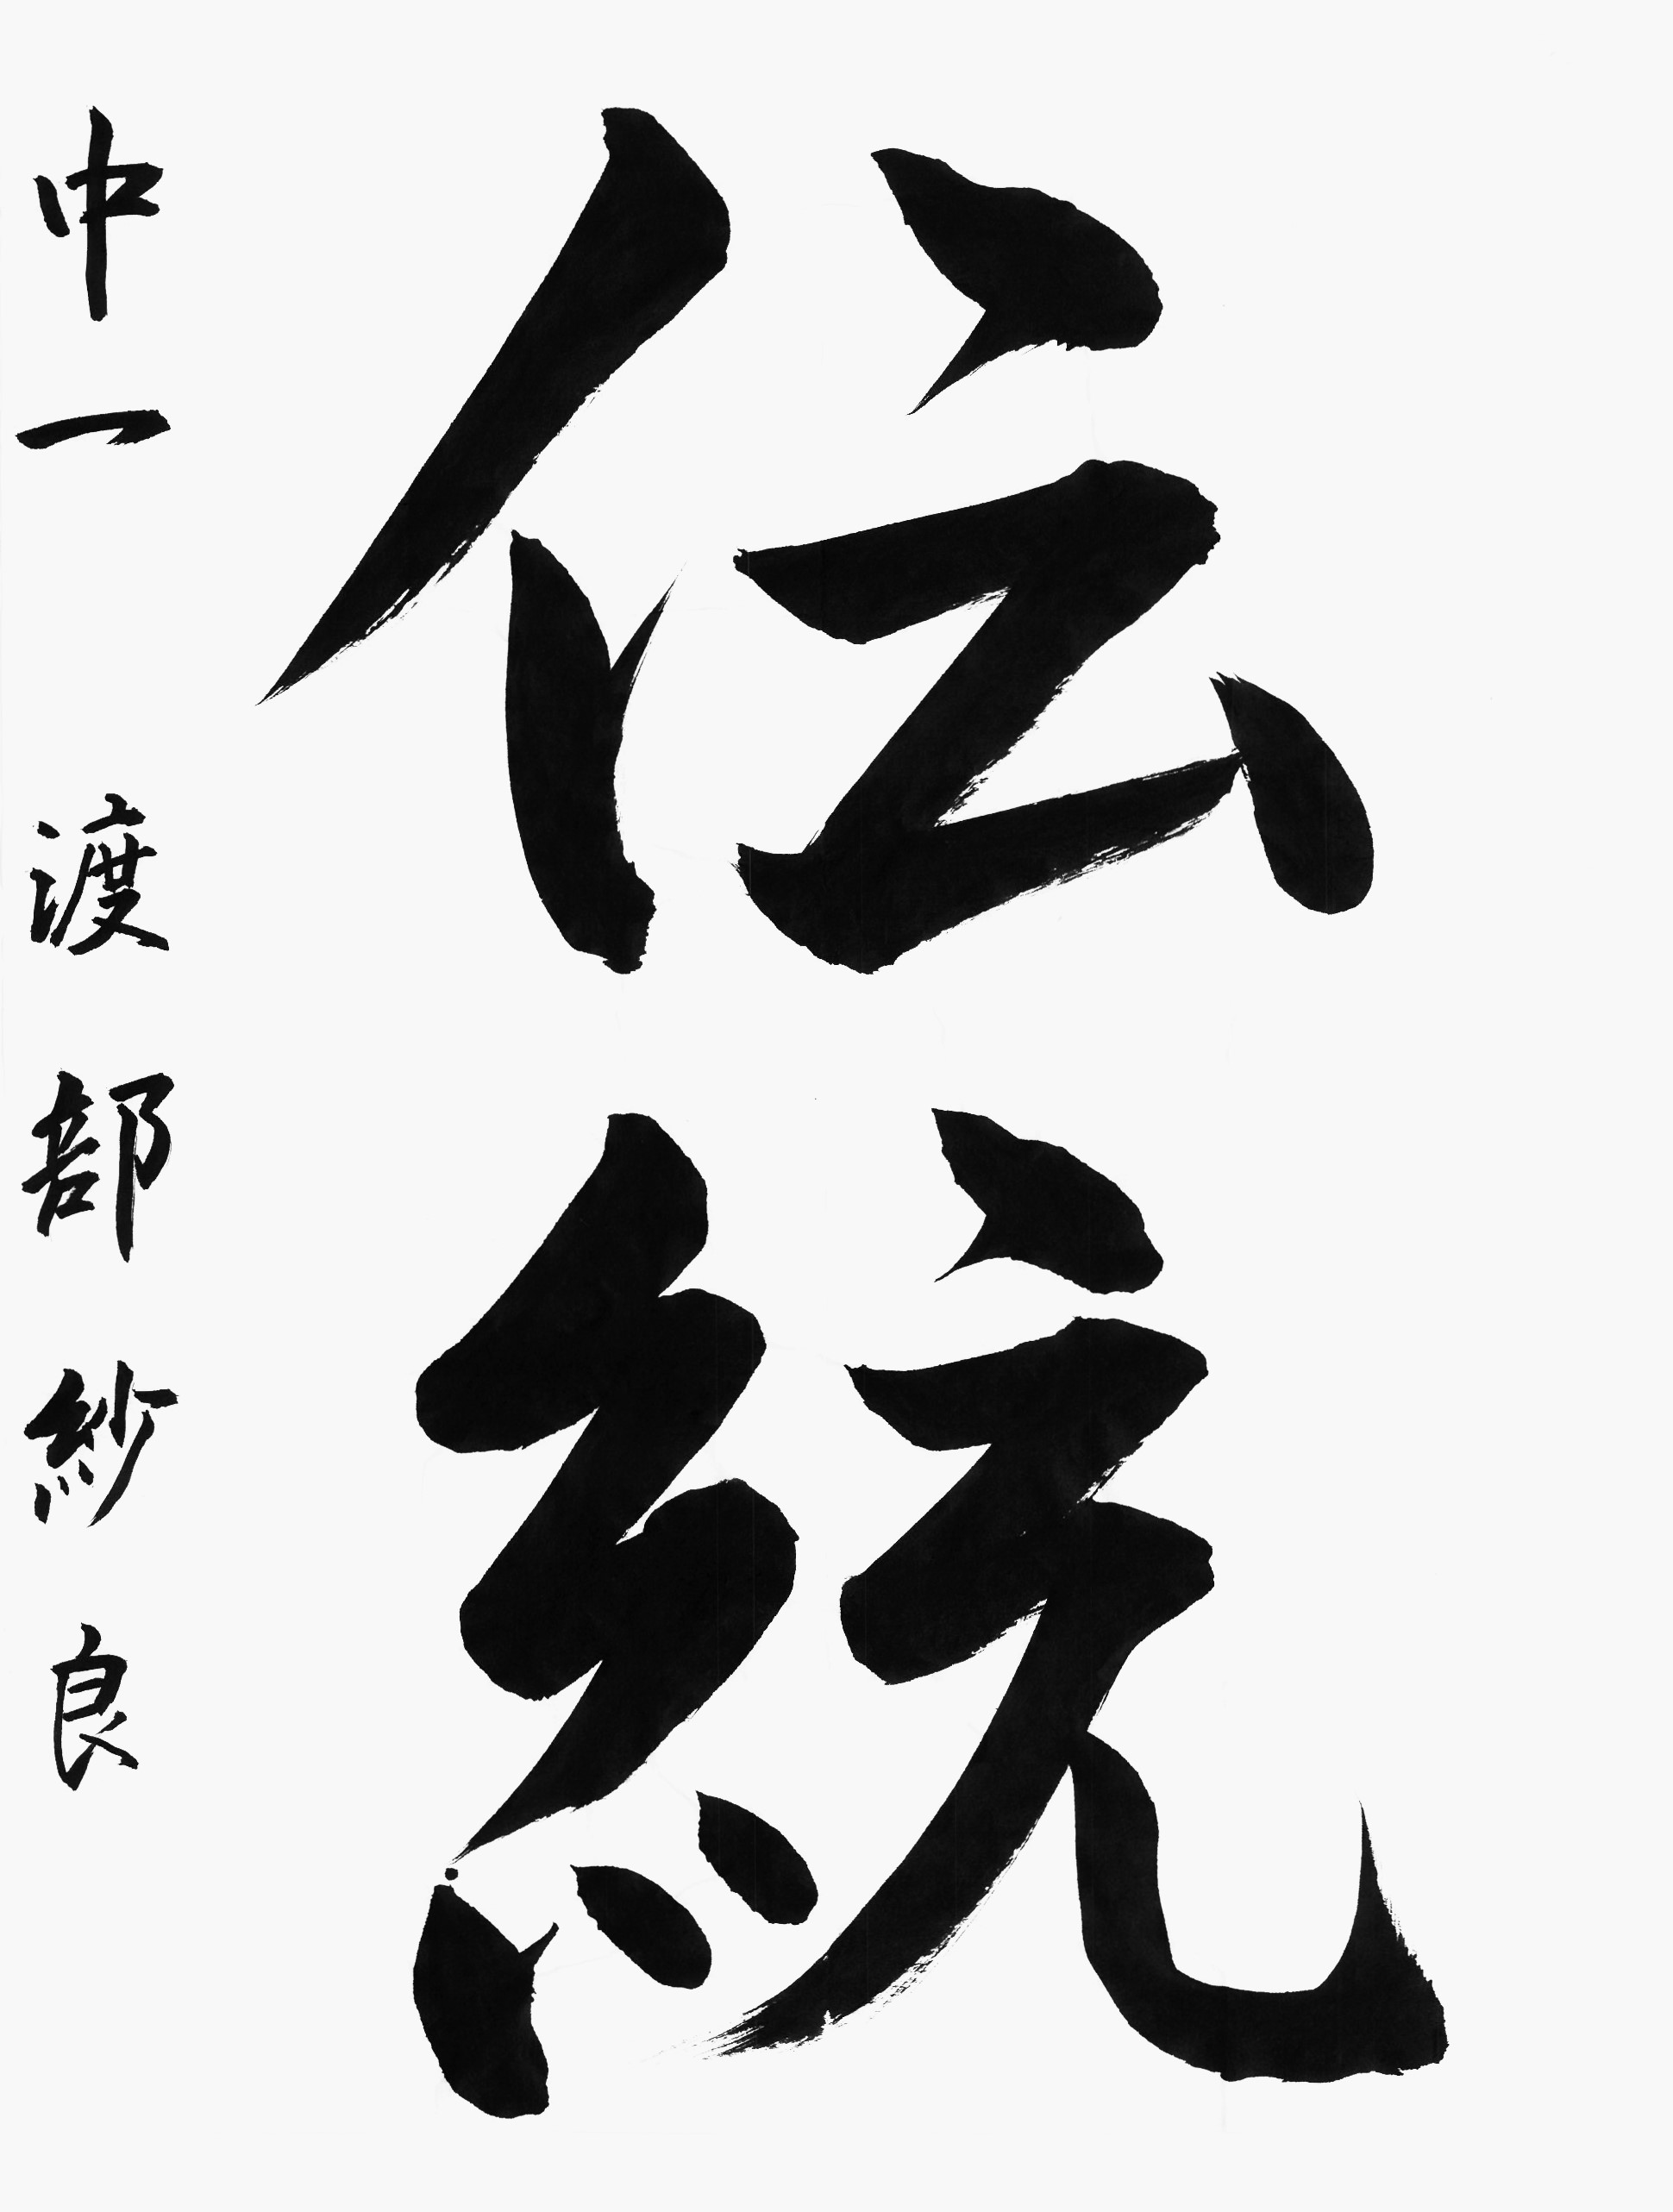 伝統
中一 渡部紗良